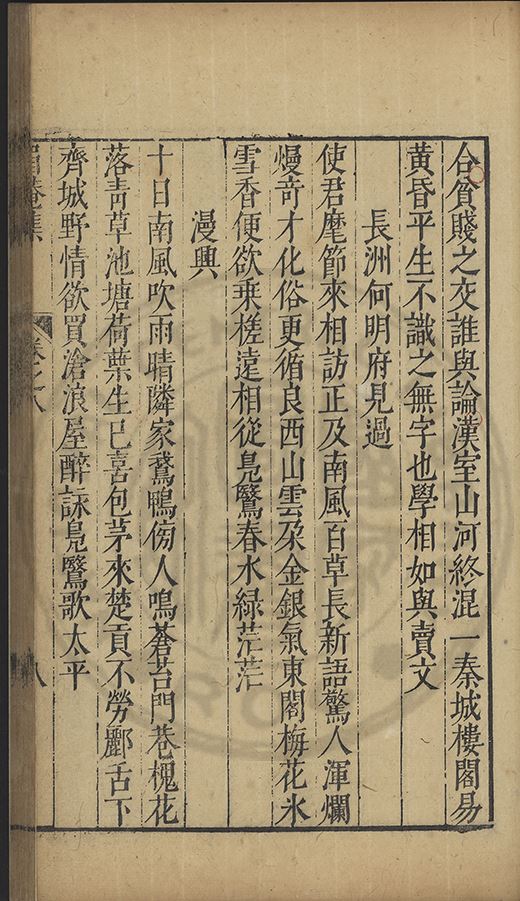 合貧賤之交誰與論漢室山河終混一秦城樓閣易
黃昏平生不識之無字也學相如與賣文
長洲何明府見過
使君麾節來相訪正及南風百草長新語驚人渾爛
熳奇才化俗更循良西山雲朶金銀氣東閣梅花氷
雪香便欲乗槎遠相從鳧鷖春水緑茫茫
漫興
十日南風吹雨晴隣家鵞鴨傍人鳴蒼苔門巷槐花
落靑草池塘荷葉生已喜包茅來楚貢不勞酈舌下
齊城野情欲買滄浪屋醉詠鳧鷖歌太平
卷之八
八